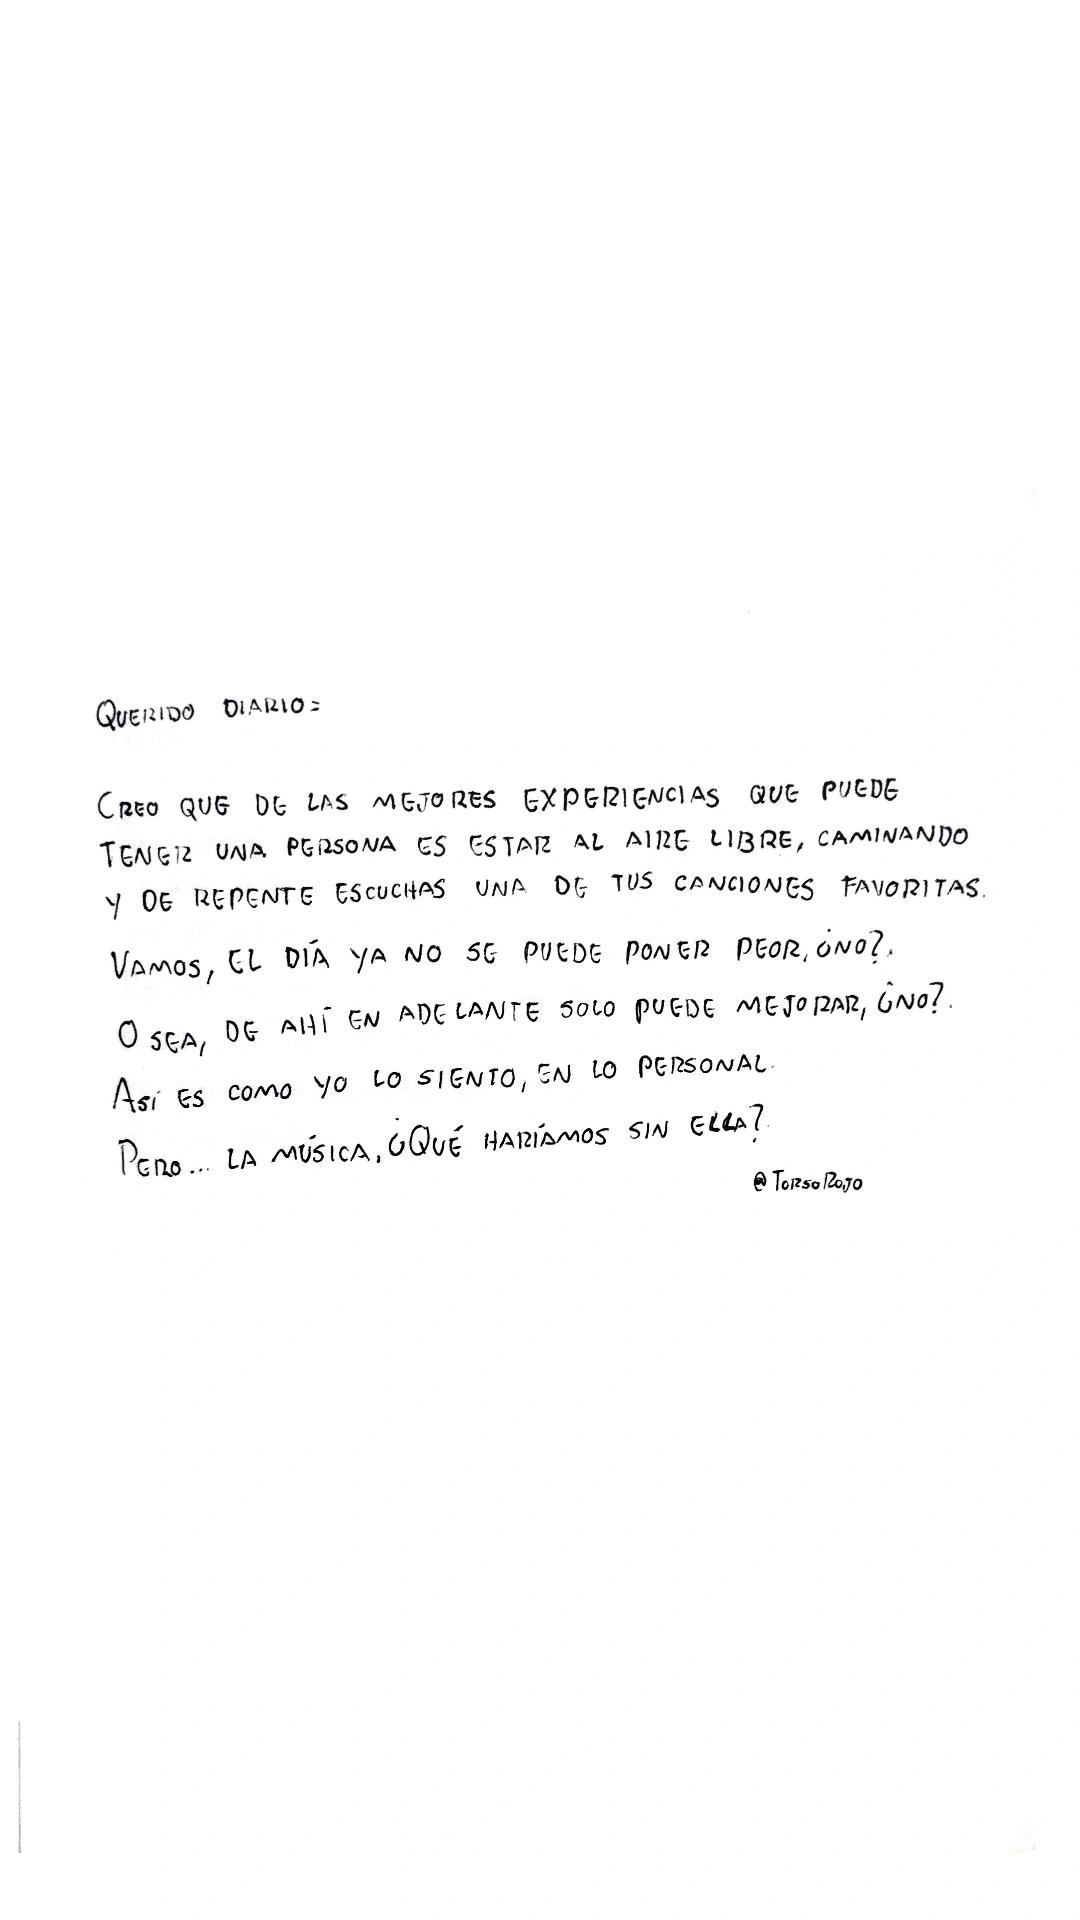 Querido diario:
Creo que de las mejores experiencias que puede
tener una persona es estar al aire libre, caminando
y de repente escuchas una de tus canciones favoritas.
Vamos, el día ya no se puede poner peor, ¿no?.
O sea, de ahí en adelante solo puede mejorar, ¿no?.
Así es como yo lo siento, en lo personal.
Pero... la música, ¿Qué haríamos sin ella?
@TorsoRojo